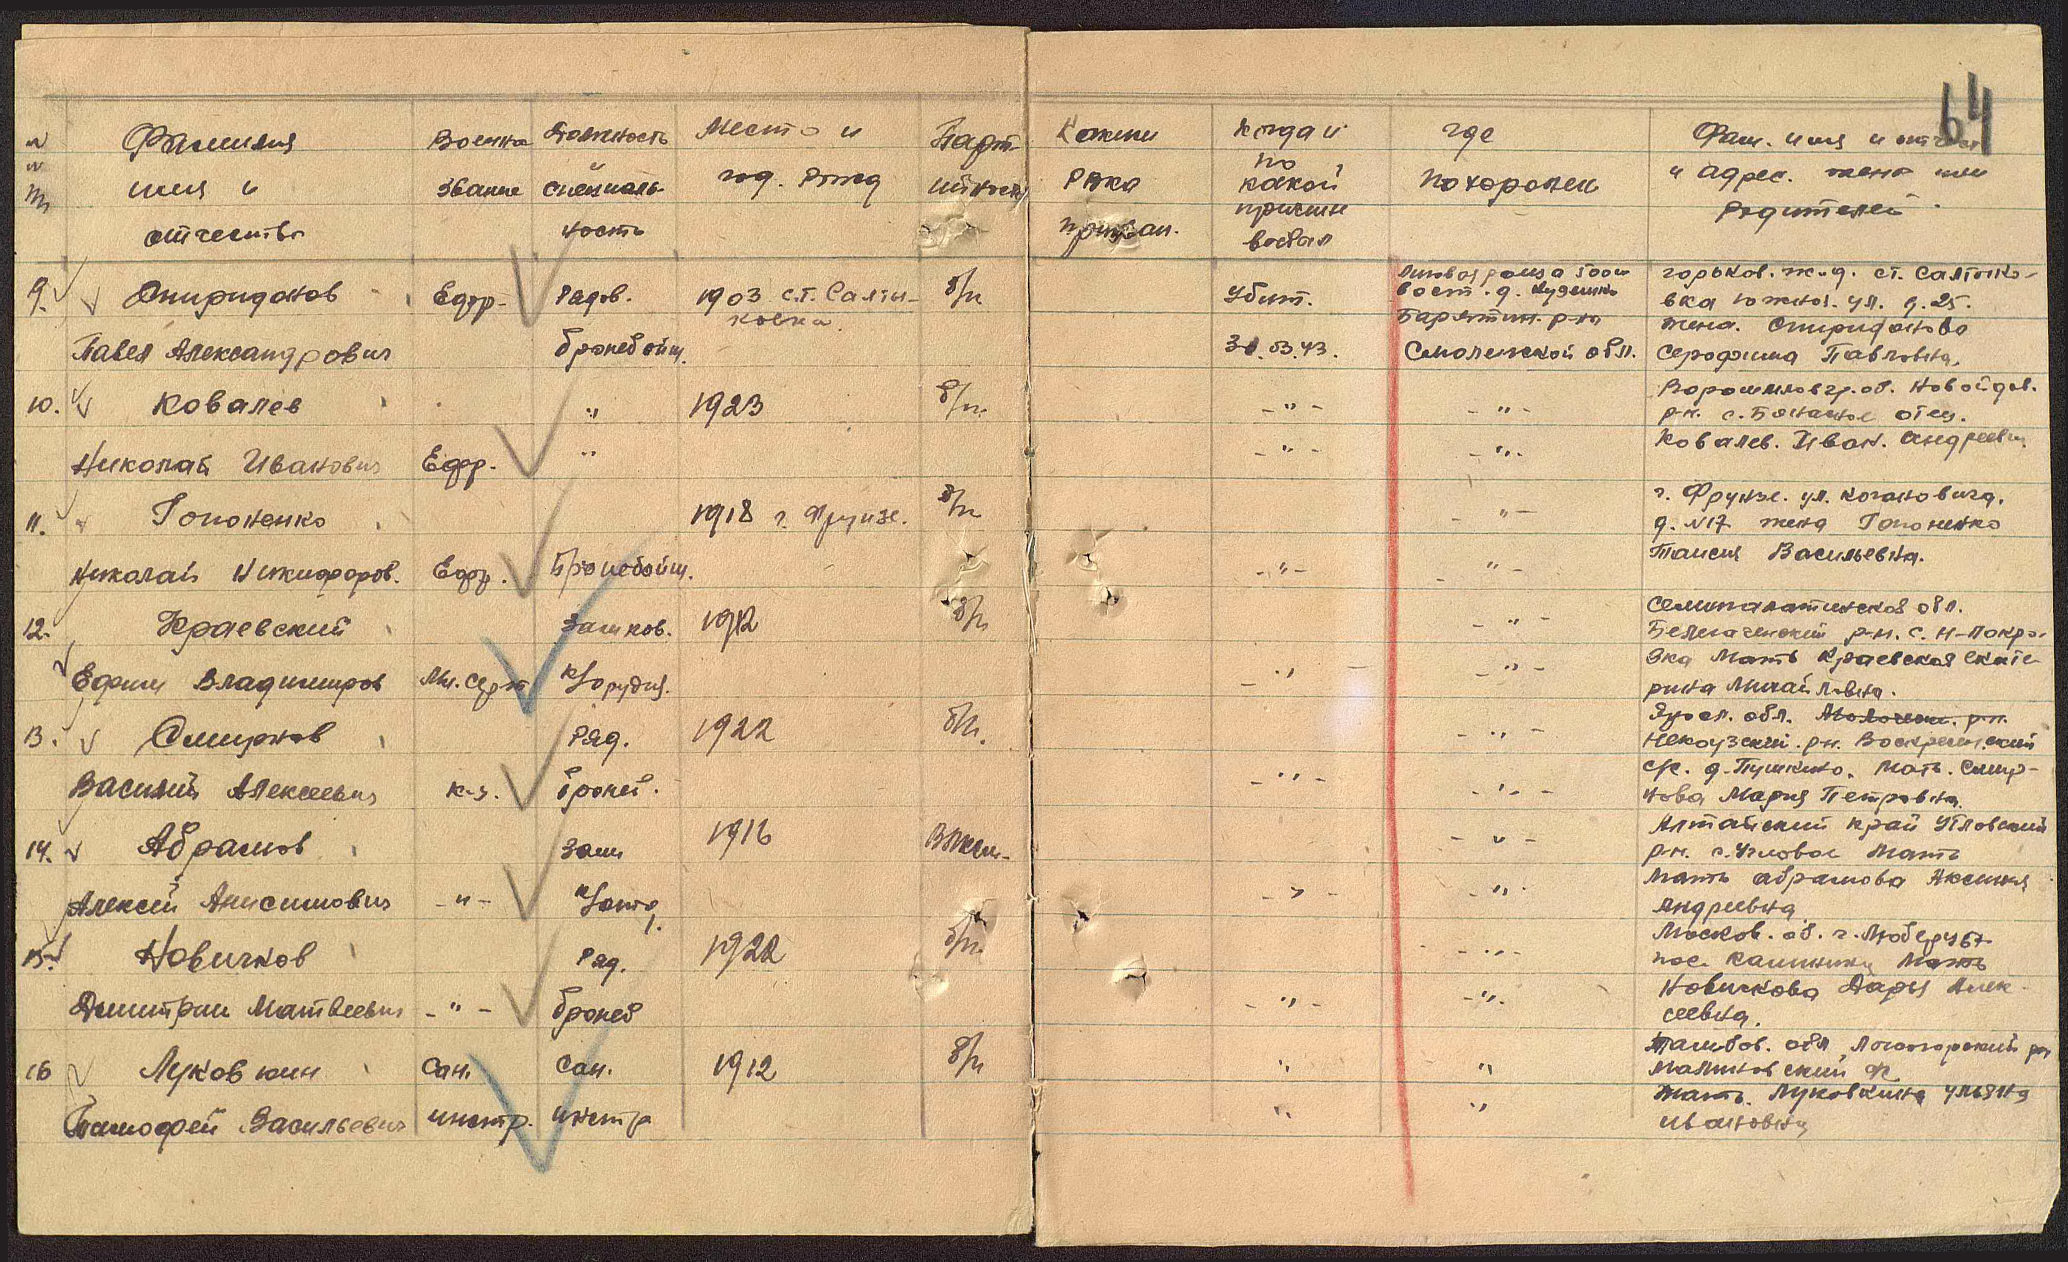 64
Фамилия имя и отчество
Военное звание
Должность специальность
Место и год. рожд
Парт
Каким РВКа призван.
Когда и по какой причине выбыл
где похоронен
Фам. имя и отчест и адрес. жены или родителей
9. Спиридонов Павел Александрович
Ефр.
Рядов. бронебойщ.
1903 ст. Салты-
ковка.
б/п
Убит.
31.03.43.
вост. д.
Барятин. р-на
Смоленской обл.
горьков. ж.д. ст. Салтыко-
вка южная. ул. д. 25.
жена. Спиридонова
Серафима Павловна.
10. Ковалев
Николай Иванович
Ефр.
"
"
1923
б/п.
- " -
- " -
- " -
- " -
Ворошиловгр. об. Новойдов.
р-н. с. отец.
Ковалев. Иван. Андреевич
11. Гопоненко
Николай Никифоров.
Ефр.
Бронебойщ.
1918 г. Фрунзе.
б/п
- " -
- " -
- " -
г. Фрунзе. ул. Когановича.
д. №17 жена Гопоненко
Таисия Васильевна.
12. Краевский
Ефим Владимиров
Мл. серж
Замков.
к/орудия.
1912
б/п
- " -
- " -
- " -
Семипалатинская обл.
Белагаченский р-н. с. Н-Покро-
вка Мать Краевская Екате
рина Михайловна.
13. Смирнов
Василий Алексеевич
к-з.
Ряд.
бронеб.
1922
б/п.
- " -
- " -
- " -
Яросл. обл. р-н.
Некоузский. р-н. Воскресенский
с/с. д. Пушкино. Мать. Смир-
нова Мария Петровна
14. Абрамов
Алексей Анисимович
- " -
Зам
1916
- " -
- " -
- " -
Алтайский край Угловский
р-н. с. Угловое Мать
Мать Абрамова Аксиния
Андреевна
15. Новичков
Дмитрий Матвеевич
- " -
Ряд.
бронеб
1922
б/п.
- " -
- " -
- " -
Москов. об. г. Люберцы
пос. Калинина Мать
Новичкова Дарья Алек-
сеевна.
16 Луковкин
Тимофей Васильевич
Сан.
инстр.
Сан.
инстр
1912
б/п
"
"
"
"
Тамбов. обл.
Малиновский
Мать. Луковкина Ульяна
Ивановна